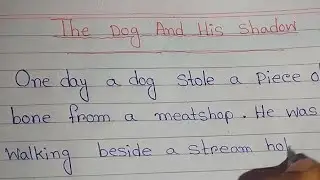 The Dog And His Shadow
One day a dog stole a piece o
bone from a meatshop. He was
walking beside a stream hol